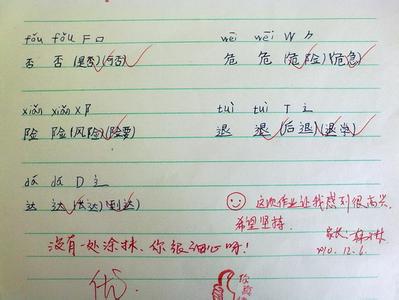 fǒu fǒu F 口 wēi wēi W ⺈
否 否 (是否) (可否) 危 危 (危险) (危急)
xiǎn xiǎn X 阝 tuì tuì T 辶
险 险 (风险) (险要) 退 退 (后退) (退学)
dá dá D 辶
达 达 (发达) (到达)
这次作业让我感到很高兴,
希望坚持.
没有一处涂抹,你很细心呀!
家长:
优